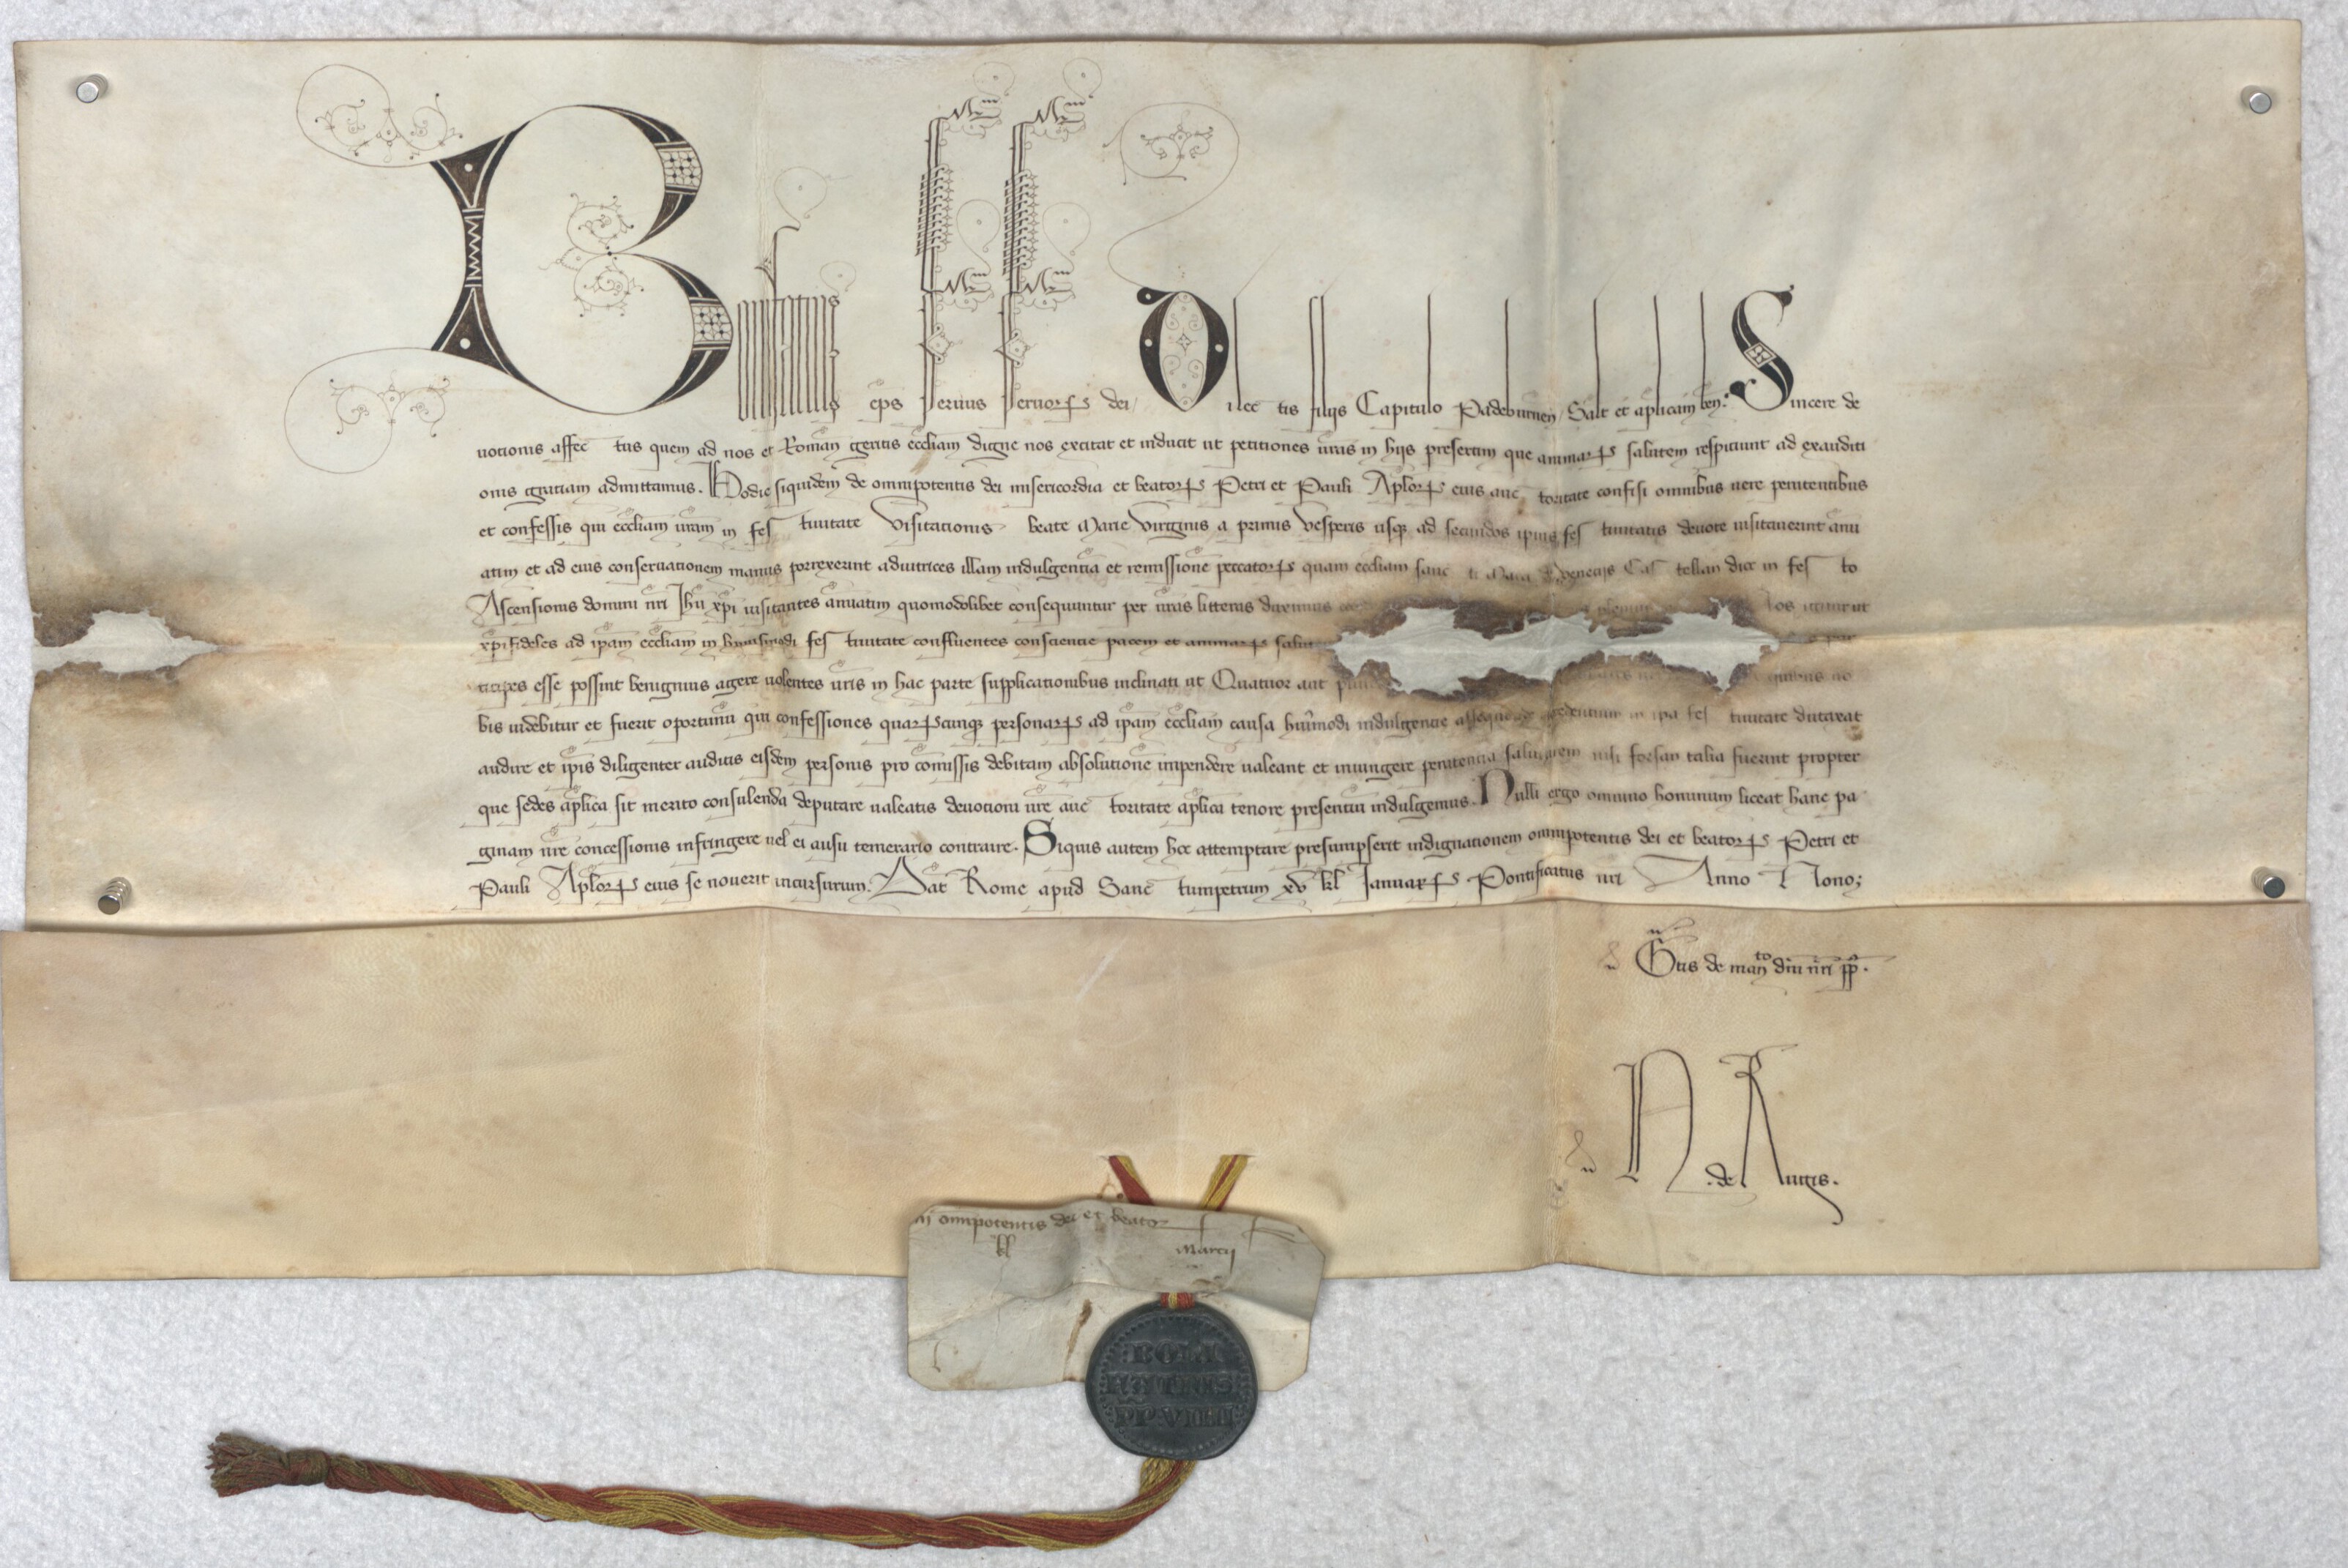 Bonifatius ep̃s seruus seruoꝝ dei Dilectis filijs Capitulo Padeburnen̄ Saƚt et ap̃licam ben̄. Sincere de
uotionis affectus quem ad nos et Roman̄ geritis ecc̃liam digne nos excitat et inducit ut petitiones ur̃as in hijs presertim que animaꝝ salutem respiciunt ad exauditi
onis gratiam admittamus. Hodie siquidem de omnipotentis dei misericordia et beatoꝝ Petri et Pauli Ap̃loꝝ eius auctoritate confisi omnibus uere penitentibus
et confessis qui ecc̃liam ur̃am in festiuitate Visitationis beate Marie Virginis a primis Vesperis usqꝫ ad secundas ip̃ius festiuitatis deuote uisitauerint annu
atim et ad eius conseruationem manus porrexerint adiutrices illam indulgentiã et remissionẽ peccatoꝝ quam ecc̃liam sancte Marie Castellan dicc̃ in festo
Ascensionis domini nr̃i Ihũ xp̃i uisitantes annuatim quomodolibet consequuntur per nr̃as litteras duximus os igitur ut
xp̃ifideles ad ip̃am ecc̃liam in huiusmodi festiuitate confluentes conscientie pacem et animaꝝ salu par
ticipes esse possint benignius agere uolentes ur̃is in hac parte supplicationibus inclinati ut Quatuor aut quibus uo
bis uidebitur et fuerit oportunũ qui confessiones quaꝝcunqꝫ personaꝝ ad ip̃am ecc̃liam causa hui̇̃modi indulgentie assequende accedentium in ip̃a festiuitate dutaxat
audire et ip̃is diligenter auditis eisdem personis pro cõmissis debitam absolutionẽ impendere ualeant et iniungere penitentiã salutarem nisi forsan talia fuerint propter
que sedes ap̃lica sit merito consulenda deputare ualeatis deuotioni ur̃e auctoritate ap̃lica tenore presentiũ indulgemus. Nulli ergo omnino hominum liceat hanc pa
ginam nr̃e concessionis infringere uel ei ausu temerario contraire. Siquis autem hoc attemptare presumpserit indignationem omnipotentis dei et beatoꝝ Petri et
Pauli Ap̃loꝝ eius se nouerit incursurum. Dat̃ Rome apud Sanctumpetrum xv kƚ Januaꝝ Pontificatus nr̃i Anno Nono;
Gr̃tis de manto dñi nr̃i pp̃.
N. de Auctis.
omnipotentis dei et beatoꝝ
kƚ Marcij
BONI
FATIUS
PP VIIII